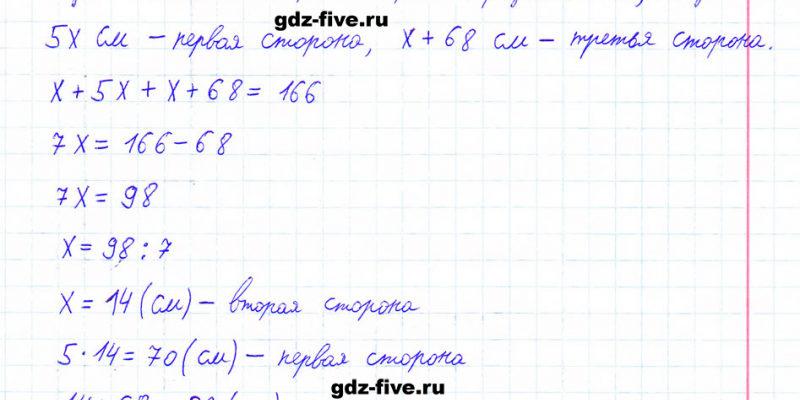 gdz-five.ru
5x см – первая сторона, x + 68 см – третья сторона.
x + 5x + x + 68 = 166
7x = 166 – 68
7x = 98
x = 98 : 7
x = 14 (см) – вторая сторона
5 · 14 = 70 (см) – первая сторона
gdz-five.ru